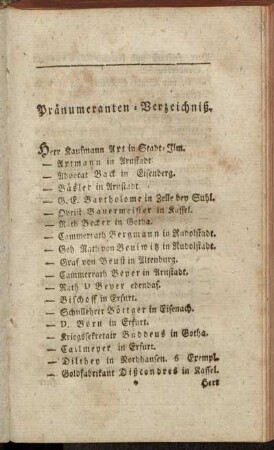 Pränumeranten-Verzeichniß.
Herr Kaufmann Art in Stadt-Ilm.
— Artmann in Arnstadt.
— Advocat Back in Eisenberg.
— Bäßler in Arnstadt.
— G. E. Bartholome in Zelle bey Suhl.
— Obrist Bauermeister in Kassel.
— Rath Becker in Gotha.
— Cammerrath Bergmann in Rudolstadt.
— Geh. Rath von Beulwitz in Rudolstadt.
— Graf von Beust in Altenburg.
— Cammerrath Beyer in Arnstadt.
— Rath V Beyer ebendas.
— Bischoff in Erfurt.
— Schullehrer Böttger in Eisenach.
— D. Born in Erfurt.
— Kriegssekretair Buddeus in Gotha.
— Callmeyer in Erfurt.
— Dilthey in Northausen. 6 Exempl.
— Goldfabrikant Dißcondres in Kassel.
* Herr